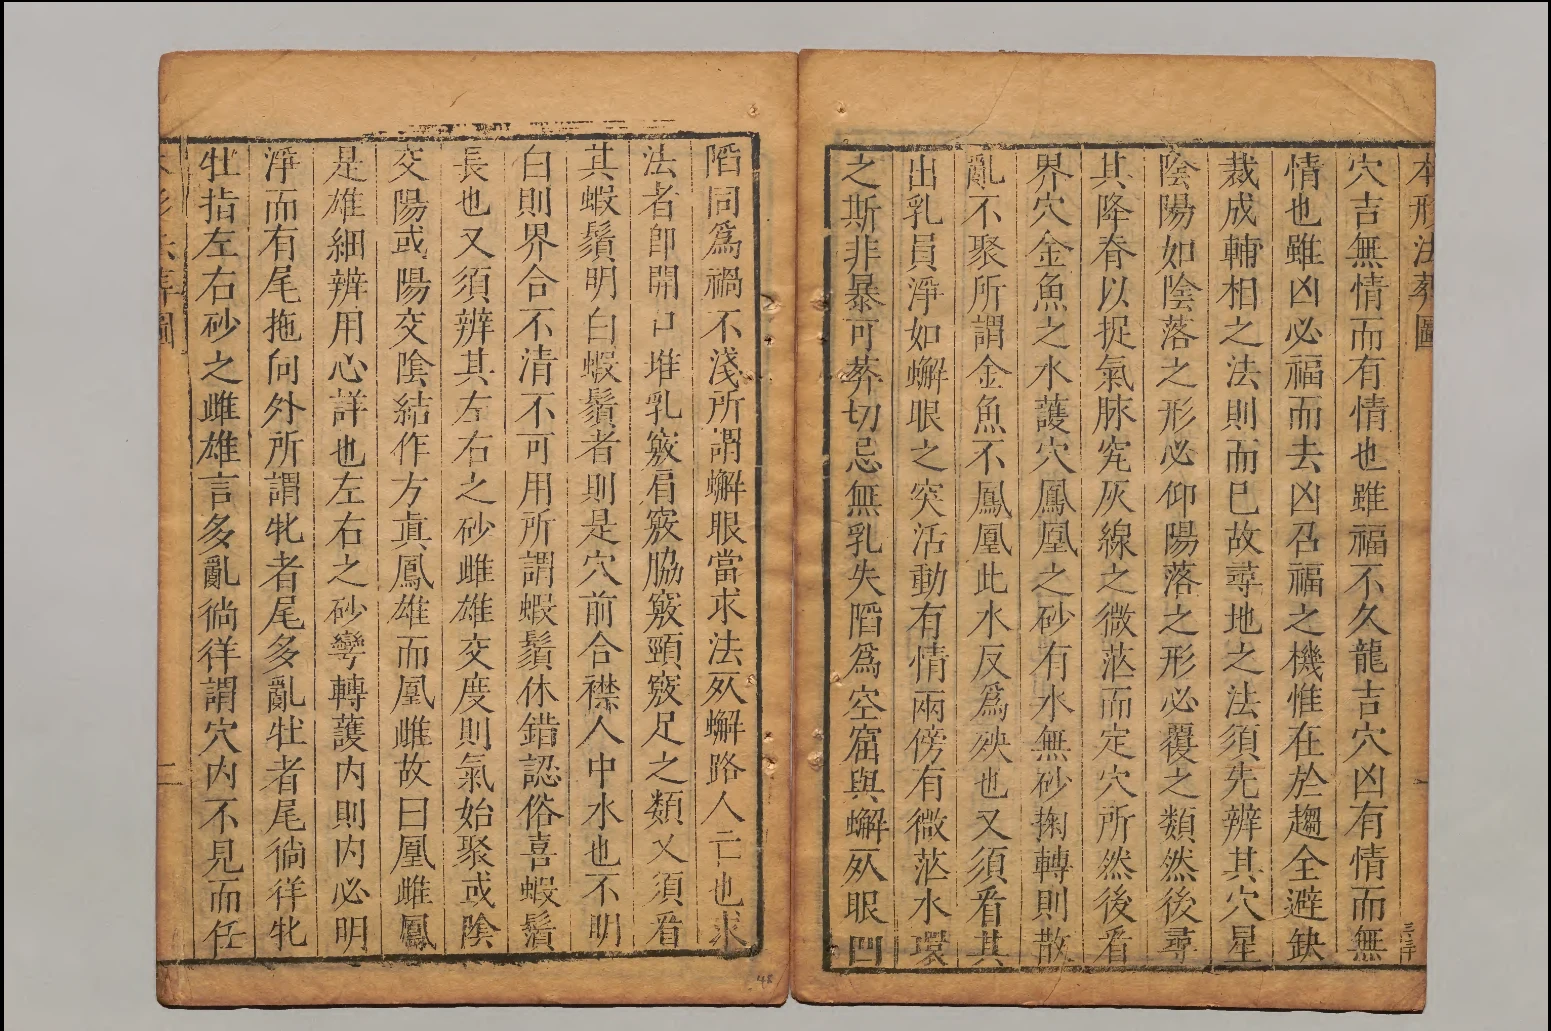 本形法葬圖
穴吉無情而有情也雖福不久龍吉穴凶有情而無
情也雖凶必福而去凶召福之機惟在於趨全避缺
裁成輔相之法則而巳故尋地之法須先辨其穴星
陰陽如陰落之形必仰陽落之形必覆之類然後尋
其降脊以捉氣脉究灰線之微茫而定穴所然後看
界穴金魚之水䕶穴鳳凰之砂有水無砂掬轉則散
亂不聚所謂金魚不鳳凰此水反爲殃也又須看其
出乳員淨如蠏眼之突活動有情兩傍有微茫水環
之斯非暴可葬切忌無乳失䧟爲空窟與蠏死眼凹
䧟同爲禍不淺所謂蠏眼當求法死蠏路人亡也求
法者卽開口堆乳竅肩竅脇竅頸竅足之類又須看
其蝦鬚明白蝦鬚者則是穴前合襟人中水也不明
白則界合不清不可用所謂蝦鬚休錯認俗喜蝦鬚
長也又須辨其左右之砂雌雄交度則氣始聚或陰
交陽或陽交陰結作方眞鳳雄而凰雌故曰凰雌鳳
是雄細辨用心詳也左右之砂彎轉䕶内則内必明
淨而有尾拖向外所謂牝者尾多亂牡者尾徜徉牝
牡指左右砂之雌雄言多亂徜徉謂穴内不見而任
二